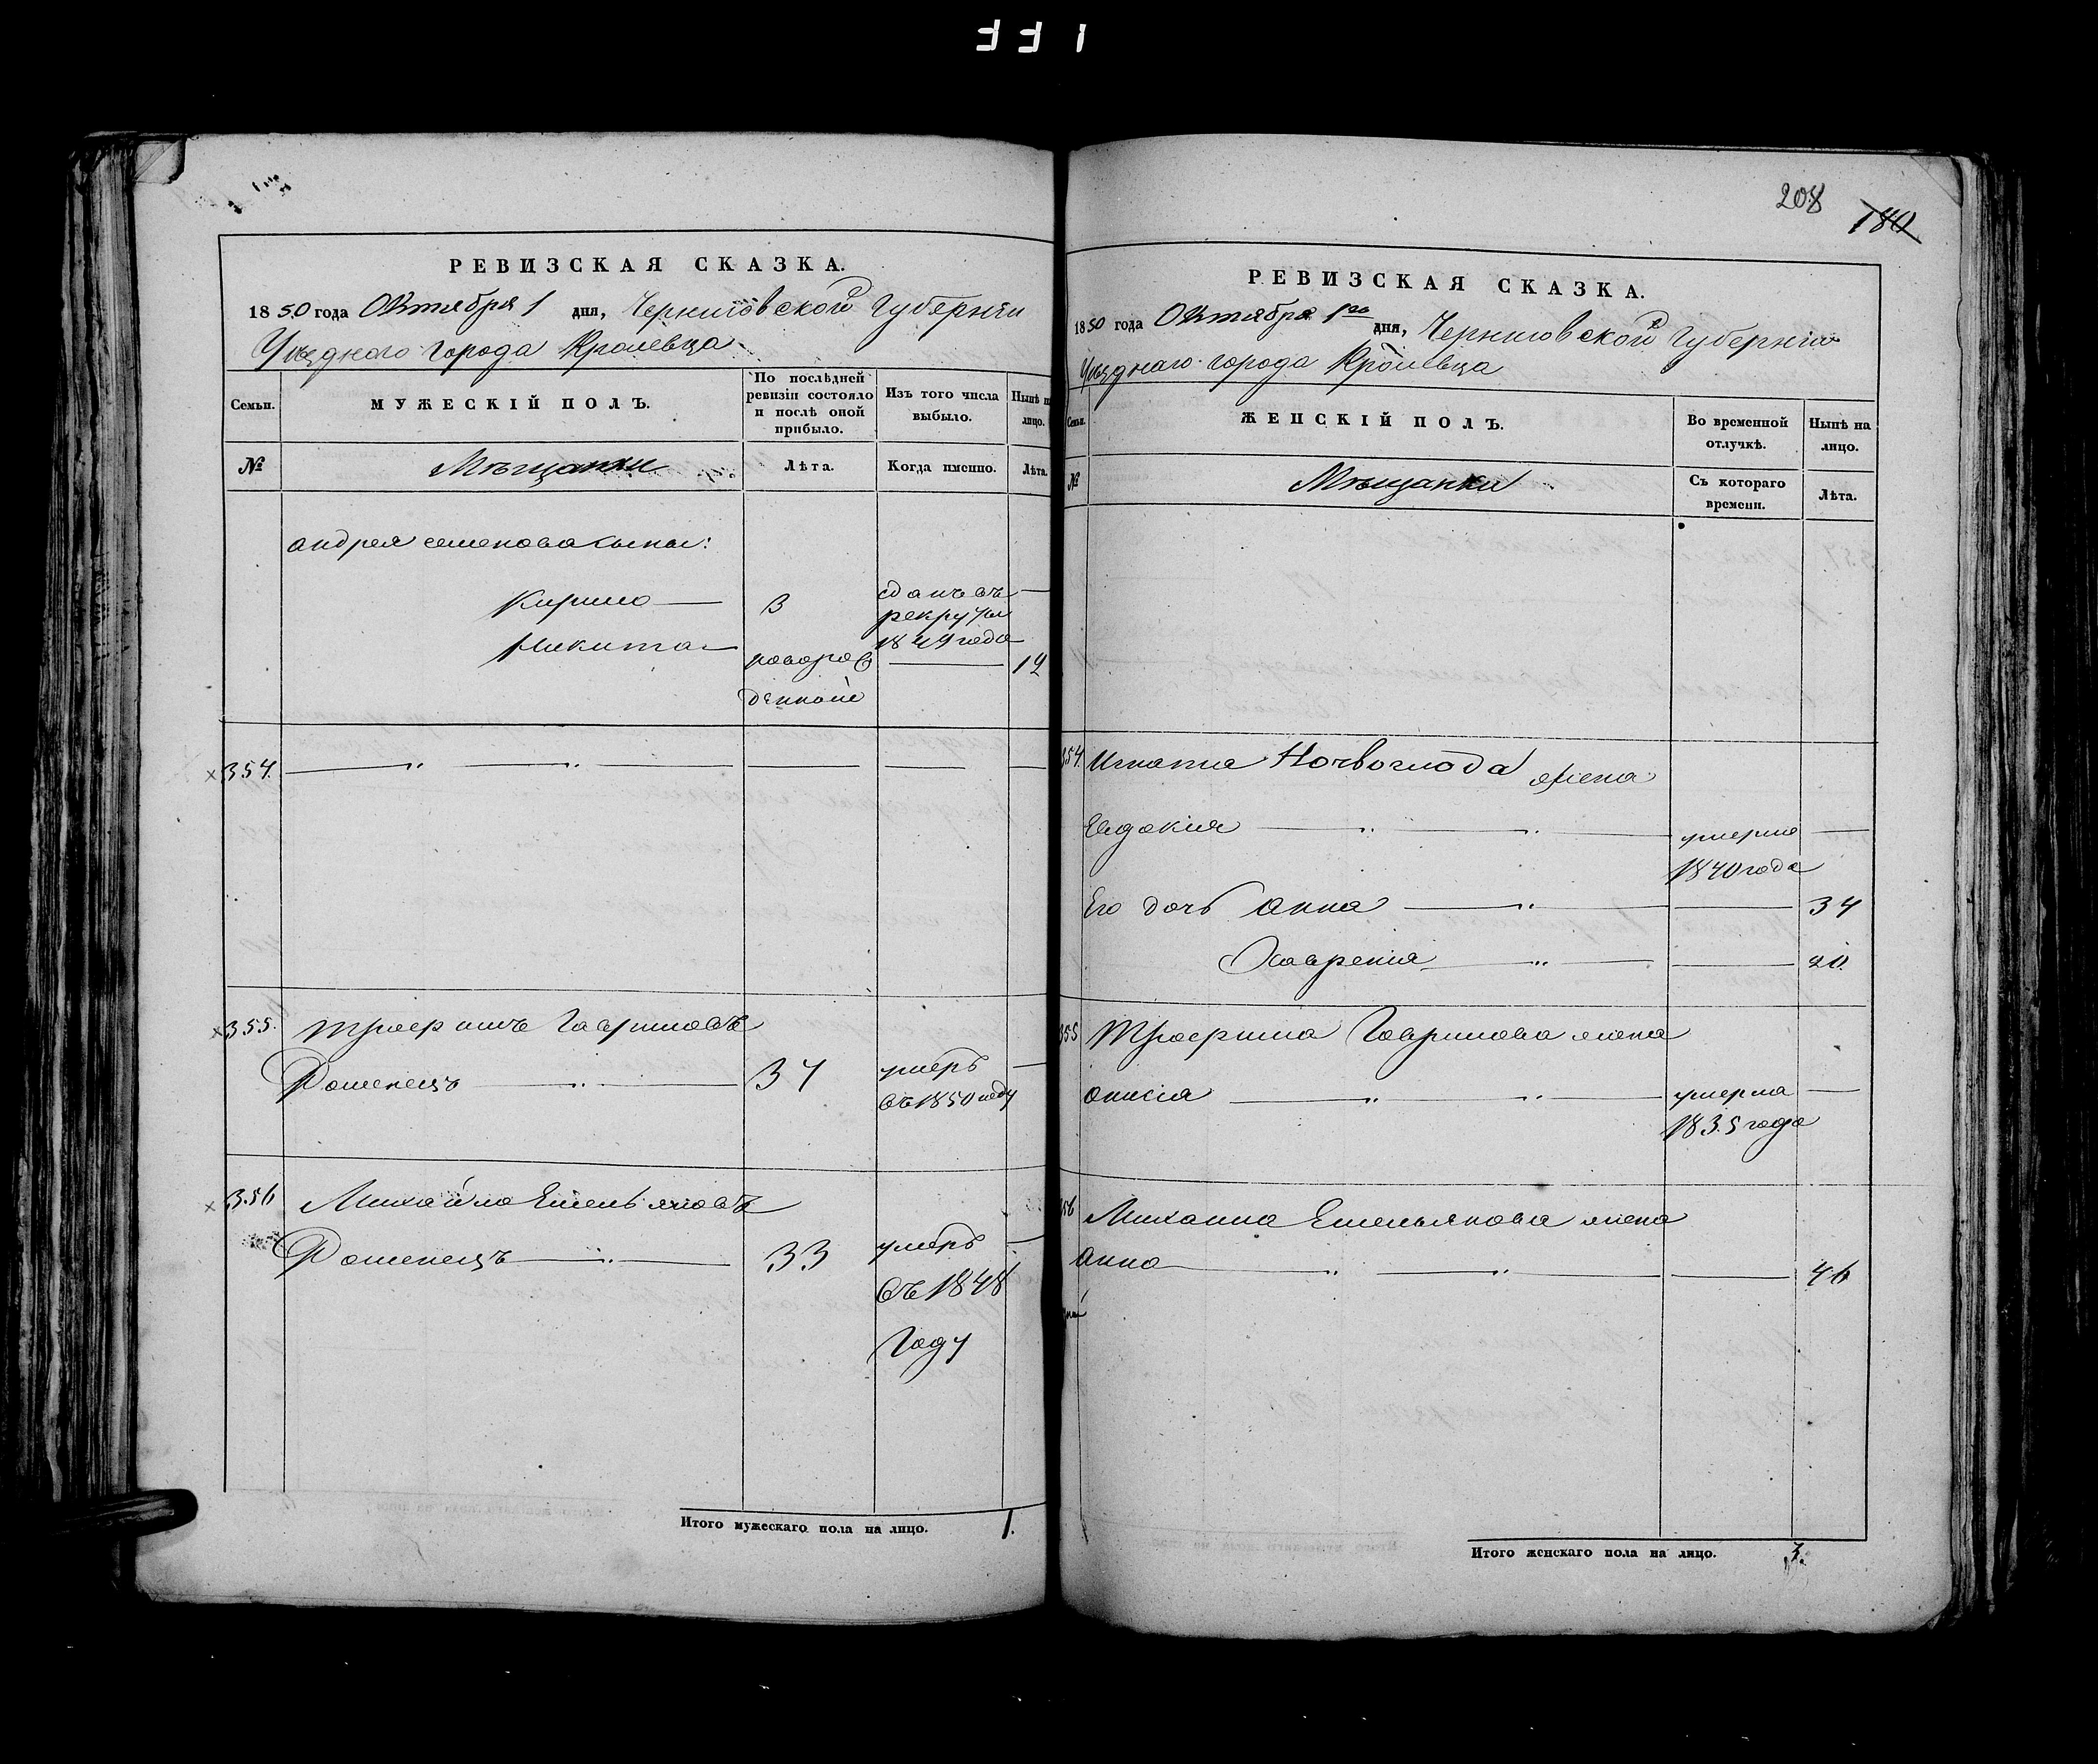 РЕВИЗСКАЯ СКАЗКА.
1850 года Октября 1 дня, Черниговской Губерніи
Уѣзднаго Города Кролевца
Семьи.
МУЖЕСКІЙ ПОЛЪ.
По послѣдней ревизіи состояло и послѣ оной прибыло.
Изъ того числа выбыло.
Нынѣ на лицо.
№
Мѣщанки
Лѣта.
Когда именно.
Лѣта.
андрея семенова сыны:
Кирило — 3 сданъ въ рекруты 1844 года —
Никита — новорожденной — 12
354.
355. Трофимъ Гавриловъ
Роменецъ — 34 умеръ въ 1850 году —
356 Михайло Емельяновъ
Роменецъ — 33 умеръ въ 1848 Году —
Итого мужескаго пола на лицо. 1.
208
180
РЕВИЗСКАЯ СКАЗКА.
1850 года Октября 1го дня, Черниговской Губерніи
Уѣзднаго города Кролевца
Семьи.
ЖЕНСКІЙ ПОЛЪ.
Во временной отлучкѣ.
Нынѣ на лицо.
№
Мѣщанки
Съ котораго времени.
Лѣта.
354. Игната жена
Евдокия — умерла 1840 года —
Его дочь анна — 34
Хаврения — 20.
355 Гаврилова жена
анисія — умерла 1835 года —
356 Михаила Емельянова жена
анна — 46
Итого женскаго пола на лицо. 3.